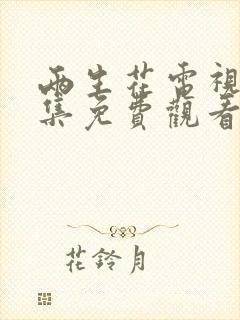 兩生花電視
集免費觀看
花鈴月